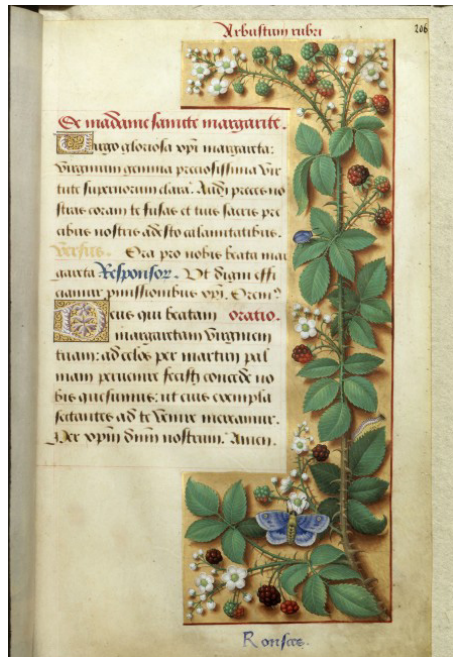 Arbustum rubri
206
De madame saincte margarite.
Virgo gloriosa xpi margareta:
virginum gemma preciosissima vir
tute supernorum clara. Audi preces no
stras coram te fusas et tuis sacris pre
cibus nostris adesto calamitatibus.
Versus. Ora pro nobis beata mar
gareta Responsor. Ut digni effi
ciamur pmissionibus xpi. Orem9
Deus qui beatam oratio.
margaretam virginem
tuam: ad celos per martirii pal
mam peruenire fecisti concede no
bis quesumus: ut eius exempla
sectantes ad te venire mereamur.
Per xpm dnm nostrum. Amen.
Ronsces.